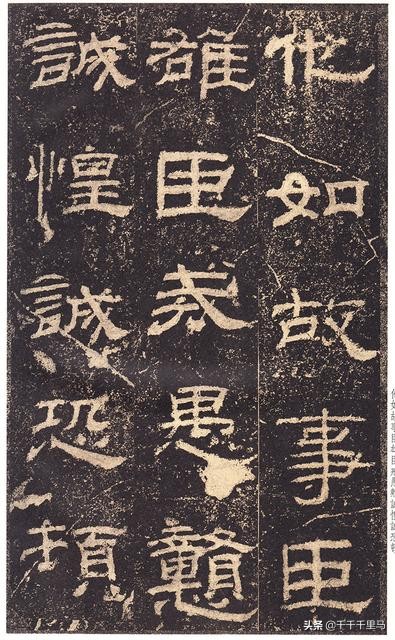 他如故事臣
雄臣戒愚戇
誠惶誠恐頓
头条 @千千千里马